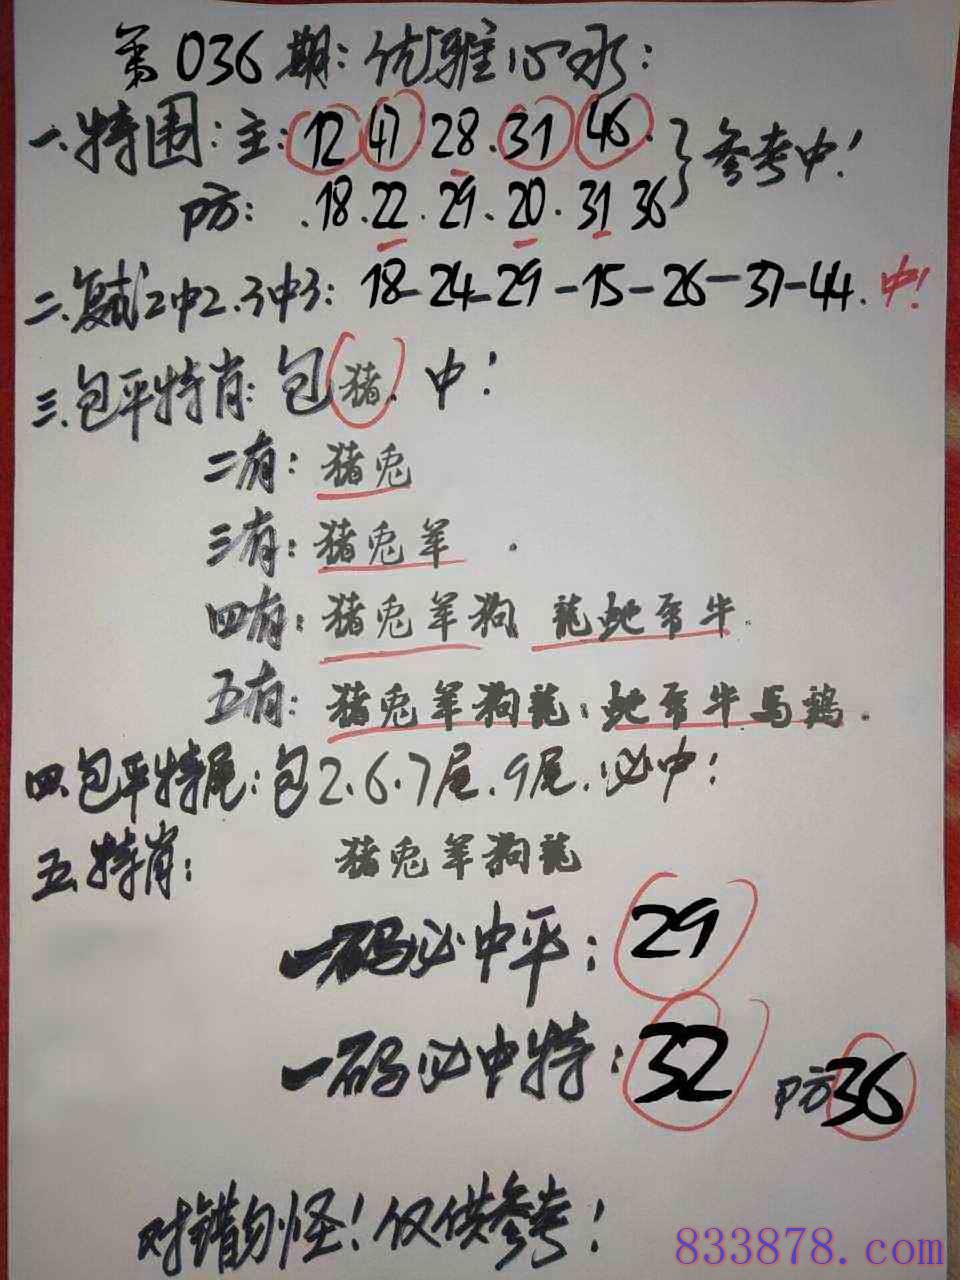 第036期:优雅心水:
一.特围:主:12 47 28.31 46.
防:.18.22.29.20.31 36
参考中!
二.复试2中2.3中3: 18-24-29-15-26-37-44.中!
三.包平特肖:包猪.中!
二有:猪兔
三有:猪兔羊.
四有:猪兔羊狗 龍蛇牛.
五有:猪兔羊狗龍:蛇牛馬鷄.
四.包平特尾:包2.6.7尾.9尾.必中!
五.特肖: 猪兔羊狗龍
一码必中平:29
一码必中特:32 防36
对错勿怪!仅供参考!
833878.com